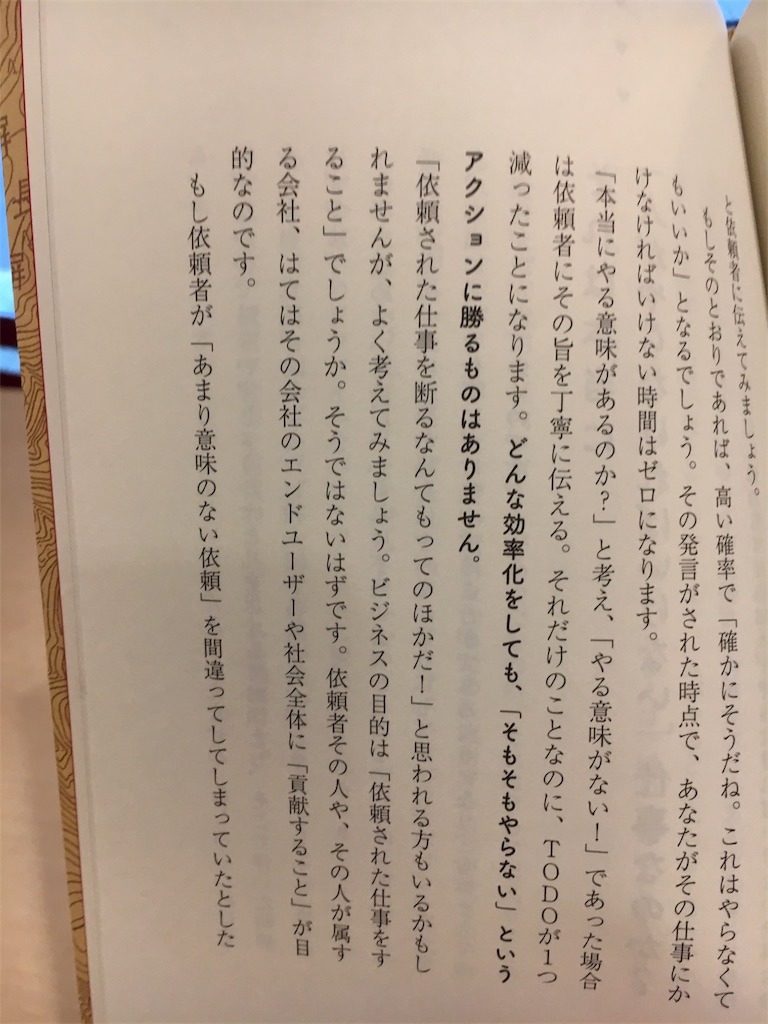 と依頼者に伝えてみましょう。
もしそのとおりであれば、高い確率で「確かにそうだね。これはやらなくて
もいいか」となるでしょう。その発言がされた時点で、あなたがその仕事にか
けなければいけない時間はゼロになります。
「本当にやる意味があるのか?」と考え、「やる意味がない!」であった場合
は依頼者にその旨を丁寧に伝える。それだけのことなのに、TODOが1つ
減ったことになります。どんな効率化をしても、「そもそもやらない」という
アクションに勝るものはありません。
「依頼された仕事を断るなんてもってのほかだ!」と思われる方もいるかもし
れませんが、よく考えてみましょう。ビジネスの目的は「依頼された仕事をす
ること」でしょうか。そうではないはずです。依頼者その人や、その人が属す
る会社、はてはその会社のエンドユーザーや社会全体に「貢献すること」が目
的なのです。
もし依頼者が「あまり意味のない依頼」を間違ってしてしまっていたとした